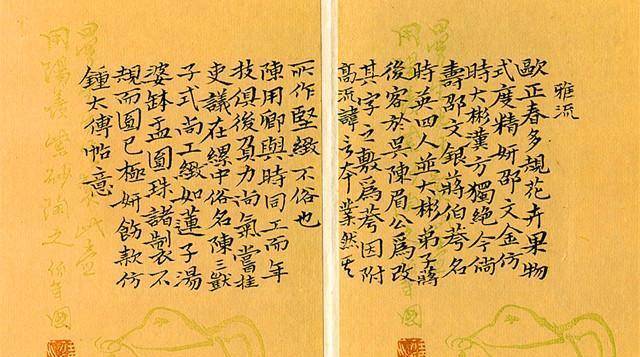 雅流
歐正春多規花卉果物
式度精妍邵文金仿
時大彬漢方獨絕今尚
壽邵文銀蔣伯荂名
時英四人並大彬弟子蔣
後客於吳陳眉公為改
其字之敷為荂因附
高流諱言本業然其
所作堅緻不俗也
陳用卿與時同工而年
技俱後負力尚氣嘗挂
吏議在縲中俗名陳三獃
子式尚工緻如蓮子湯
婆缽盂圓珠諸製不
規而圓已極妍飭款仿
鍾太傅帖意